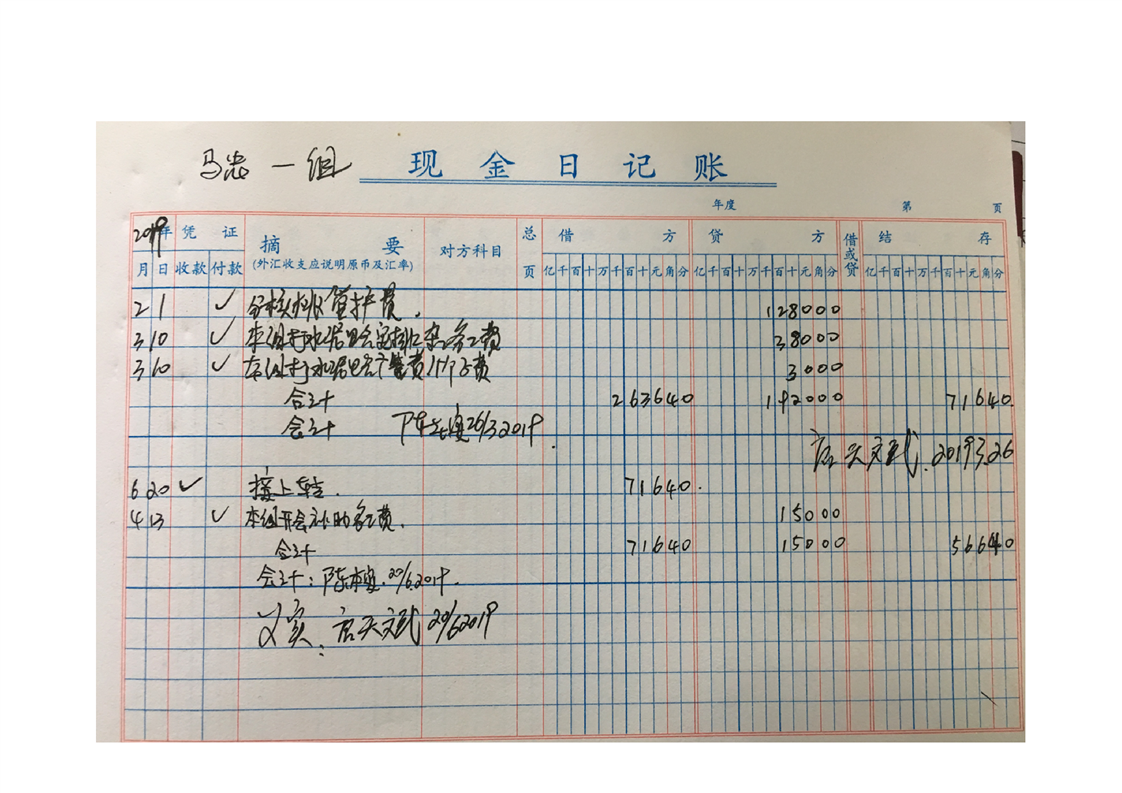 马忠一组 现金日记账
年度 第 页
2019年 凭证 摘要 对方科目 总页 借方 贷方 借或贷 结存
月 日 收款 付款 (外汇收支应说明原币及汇率) 亿千百十万千百十元角分 亿千百十万千百十元角分 亿千百十万千百十元角分
2 1 ✓ 管护费. 128000
3 10 ✓ 本组打水 务工费 38000
3 10 ✓ 本组打水 费 3000
合计 263640 192000 71640.
会计 26/3 2019.
启天文武. 2019 3.26
6 20 ✓ 接上转. 71640.
4 13 ✓ 本组开会补助务工费. 15000
合计 71640 15000 56640
会计: 陈 20/6.2019.
以实: 启天文武 20/6 2019